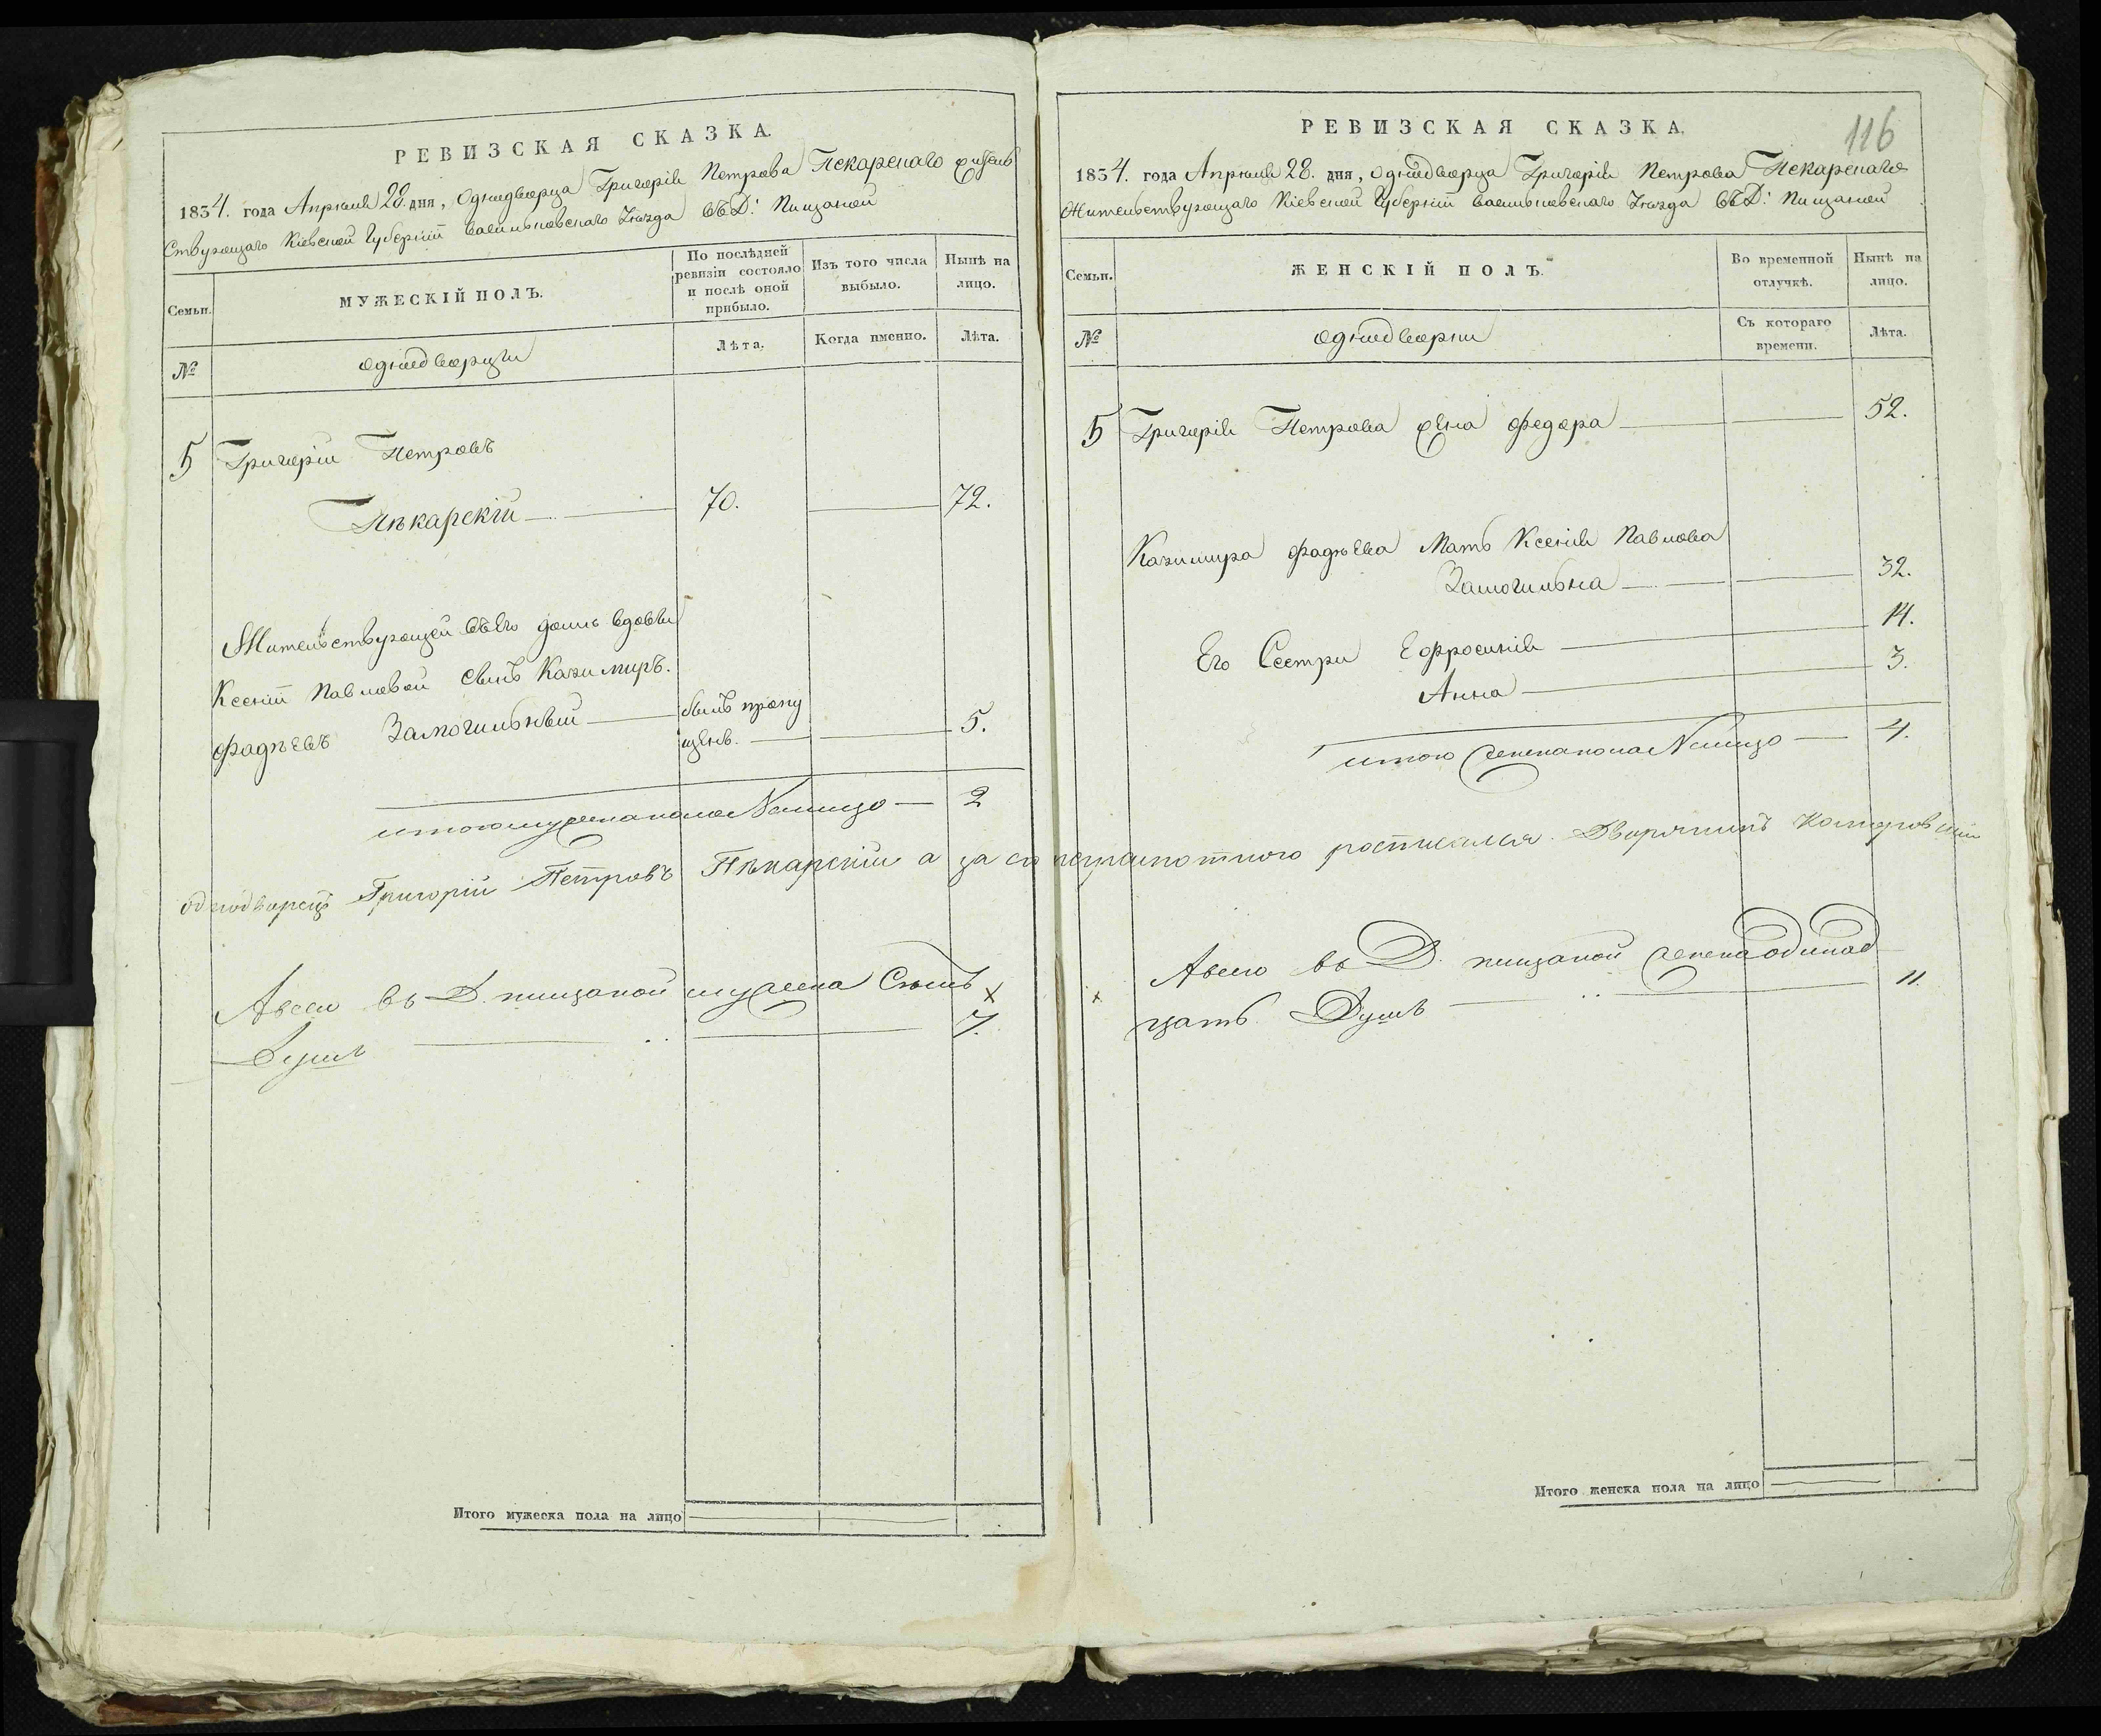 РЕВИЗСКАЯ СКАЗКА.
1834. года Апреля 28. дня, Однодворца Григорія Петрова Пекарскаго житель
ствующаго Кіевской Губерніи Васильковскаго Уѣзда въ Д: Пищаной
Семьи.
МУЖЕСКІЙ ПОЛЪ.
По послѣдней
ревизіи состояло
и послѣ оной
прибыло.
Изъ того числа
выбыло.
Нынѣ на
лицо.
№
Однодворцы
Лѣта.
Когда именно.
Лѣта.
5 Григорій Петровъ
Пѣкарскій 70. 72.
Жительствующей въ его домѣ вдовы
Ксеніи Павловой сынъ Казимиръ.
Фадѣевъ Замогильный былъ пропу
щенъ. 5.
итого мужеска пола На лицо 2
однодворецъ Григорій Петровъ Пѣкарскій а за его неграмотного росписался Дворянинъ
Авсего въ Д. пищаной мужеска Семь
Душъ 7.
Итого мужеска пола на лицо
116
РЕВИЗСКАЯ СКАЗКА.
1834. года Апреля 28. дня, Однодворца Григорія Петрова Пекарскаго
Жительствующаго Кіевской Губерніи Васильковскаго Уѣзда въ Д: Пищаной
Семьи.
ЖЕНСКІЙ ПОЛЪ.
Во временной
отлучкѣ.
Нынѣ на
лицо.
№
Однодворки
Съ котораго
времени.
Лѣта.
5 Григорія Петрова жена Федора 52.
Казимира Фадѣева Мать Ксенія Павлова
Замогильна 32.
Его Сестри Ефросинія 14.
Анна 3.
итого женска пола На лицо 4.
Авсего въ Д. пищаной женска одинад
цать Душъ 11.
Итого женска пола на лицо